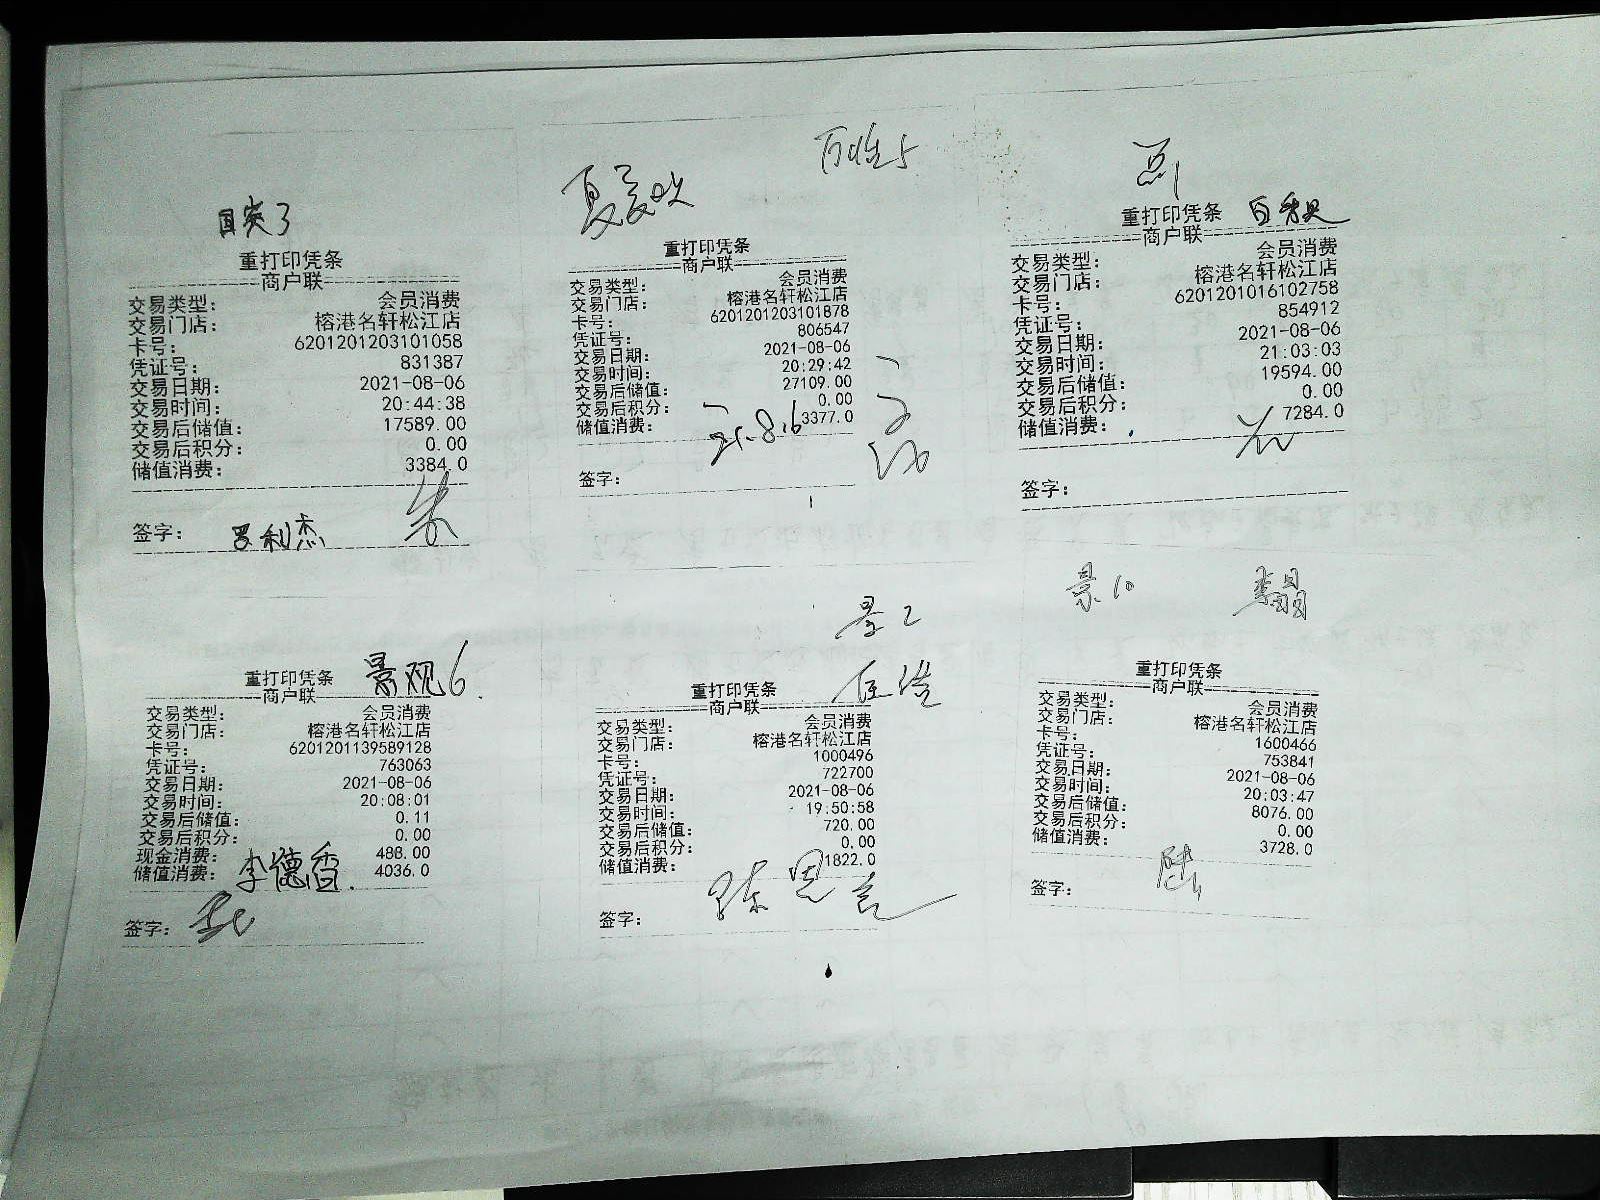 3
重打印凭条
商户联
交易类型: 会员消费
交易门店: 榕港名轩松江店
卡号: 6201201203101058
凭证号: 831387
交易日期: 2021-08-06
交易时间: 20:44:38
交易后储值: 17589.00
交易后积分: 0.00
储值消费: 3384.0
签字: 罗利杰 朱
5
重打印凭条
商户联
交易类型: 会员消费
交易门店: 榕港名轩松江店
卡号: 6201201203101878
凭证号: 806547
交易日期: 2021-08-06
交易时间: 20:29:42
交易后储值: 27109.00
交易后积分: 0.00
储值消费: 3377.0
21.8.6
签字:
重打印凭条
商户联
交易类型: 会员消费
交易门店: 榕港名轩松江店
卡号: 6201201016102758
凭证号: 854912
交易日期: 2021-08-06
交易时间: 21:03:03
交易后储值: 19594.00
交易后积分: 0.00
储值消费: 7284.0
签字:
重打印凭条 景观6.
商户联
交易类型: 会员消费
交易门店: 榕港名轩松江店
卡号: 6201201139589128
凭证号: 763063
交易日期: 2021-08-06
交易时间: 20:08:01
交易后储值: 0.11
交易后积分: 0.00
现金消费: 488.00
储值消费: 4036.0
李德香.
签字:
景2
重打印凭条
商户联
交易类型: 会员消费
交易门店: 榕港名轩松江店
卡号: 1000496
凭证号: 722700
交易日期: 2021-08-06
交易时间: 19:50:58
交易后储值: 720.00
交易后积分: 0.00
储值消费: 1822.0
签字:
景10
重打印凭条
商户联
交易类型: 会员消费
交易门店: 榕港名轩松江店
卡号: 1600466
凭证号: 753841
交易日期: 2021-08-06
交易时间: 20:03:47
交易后储值: 8076.00
交易后积分: 0.00
储值消费: 3728.0
签字: